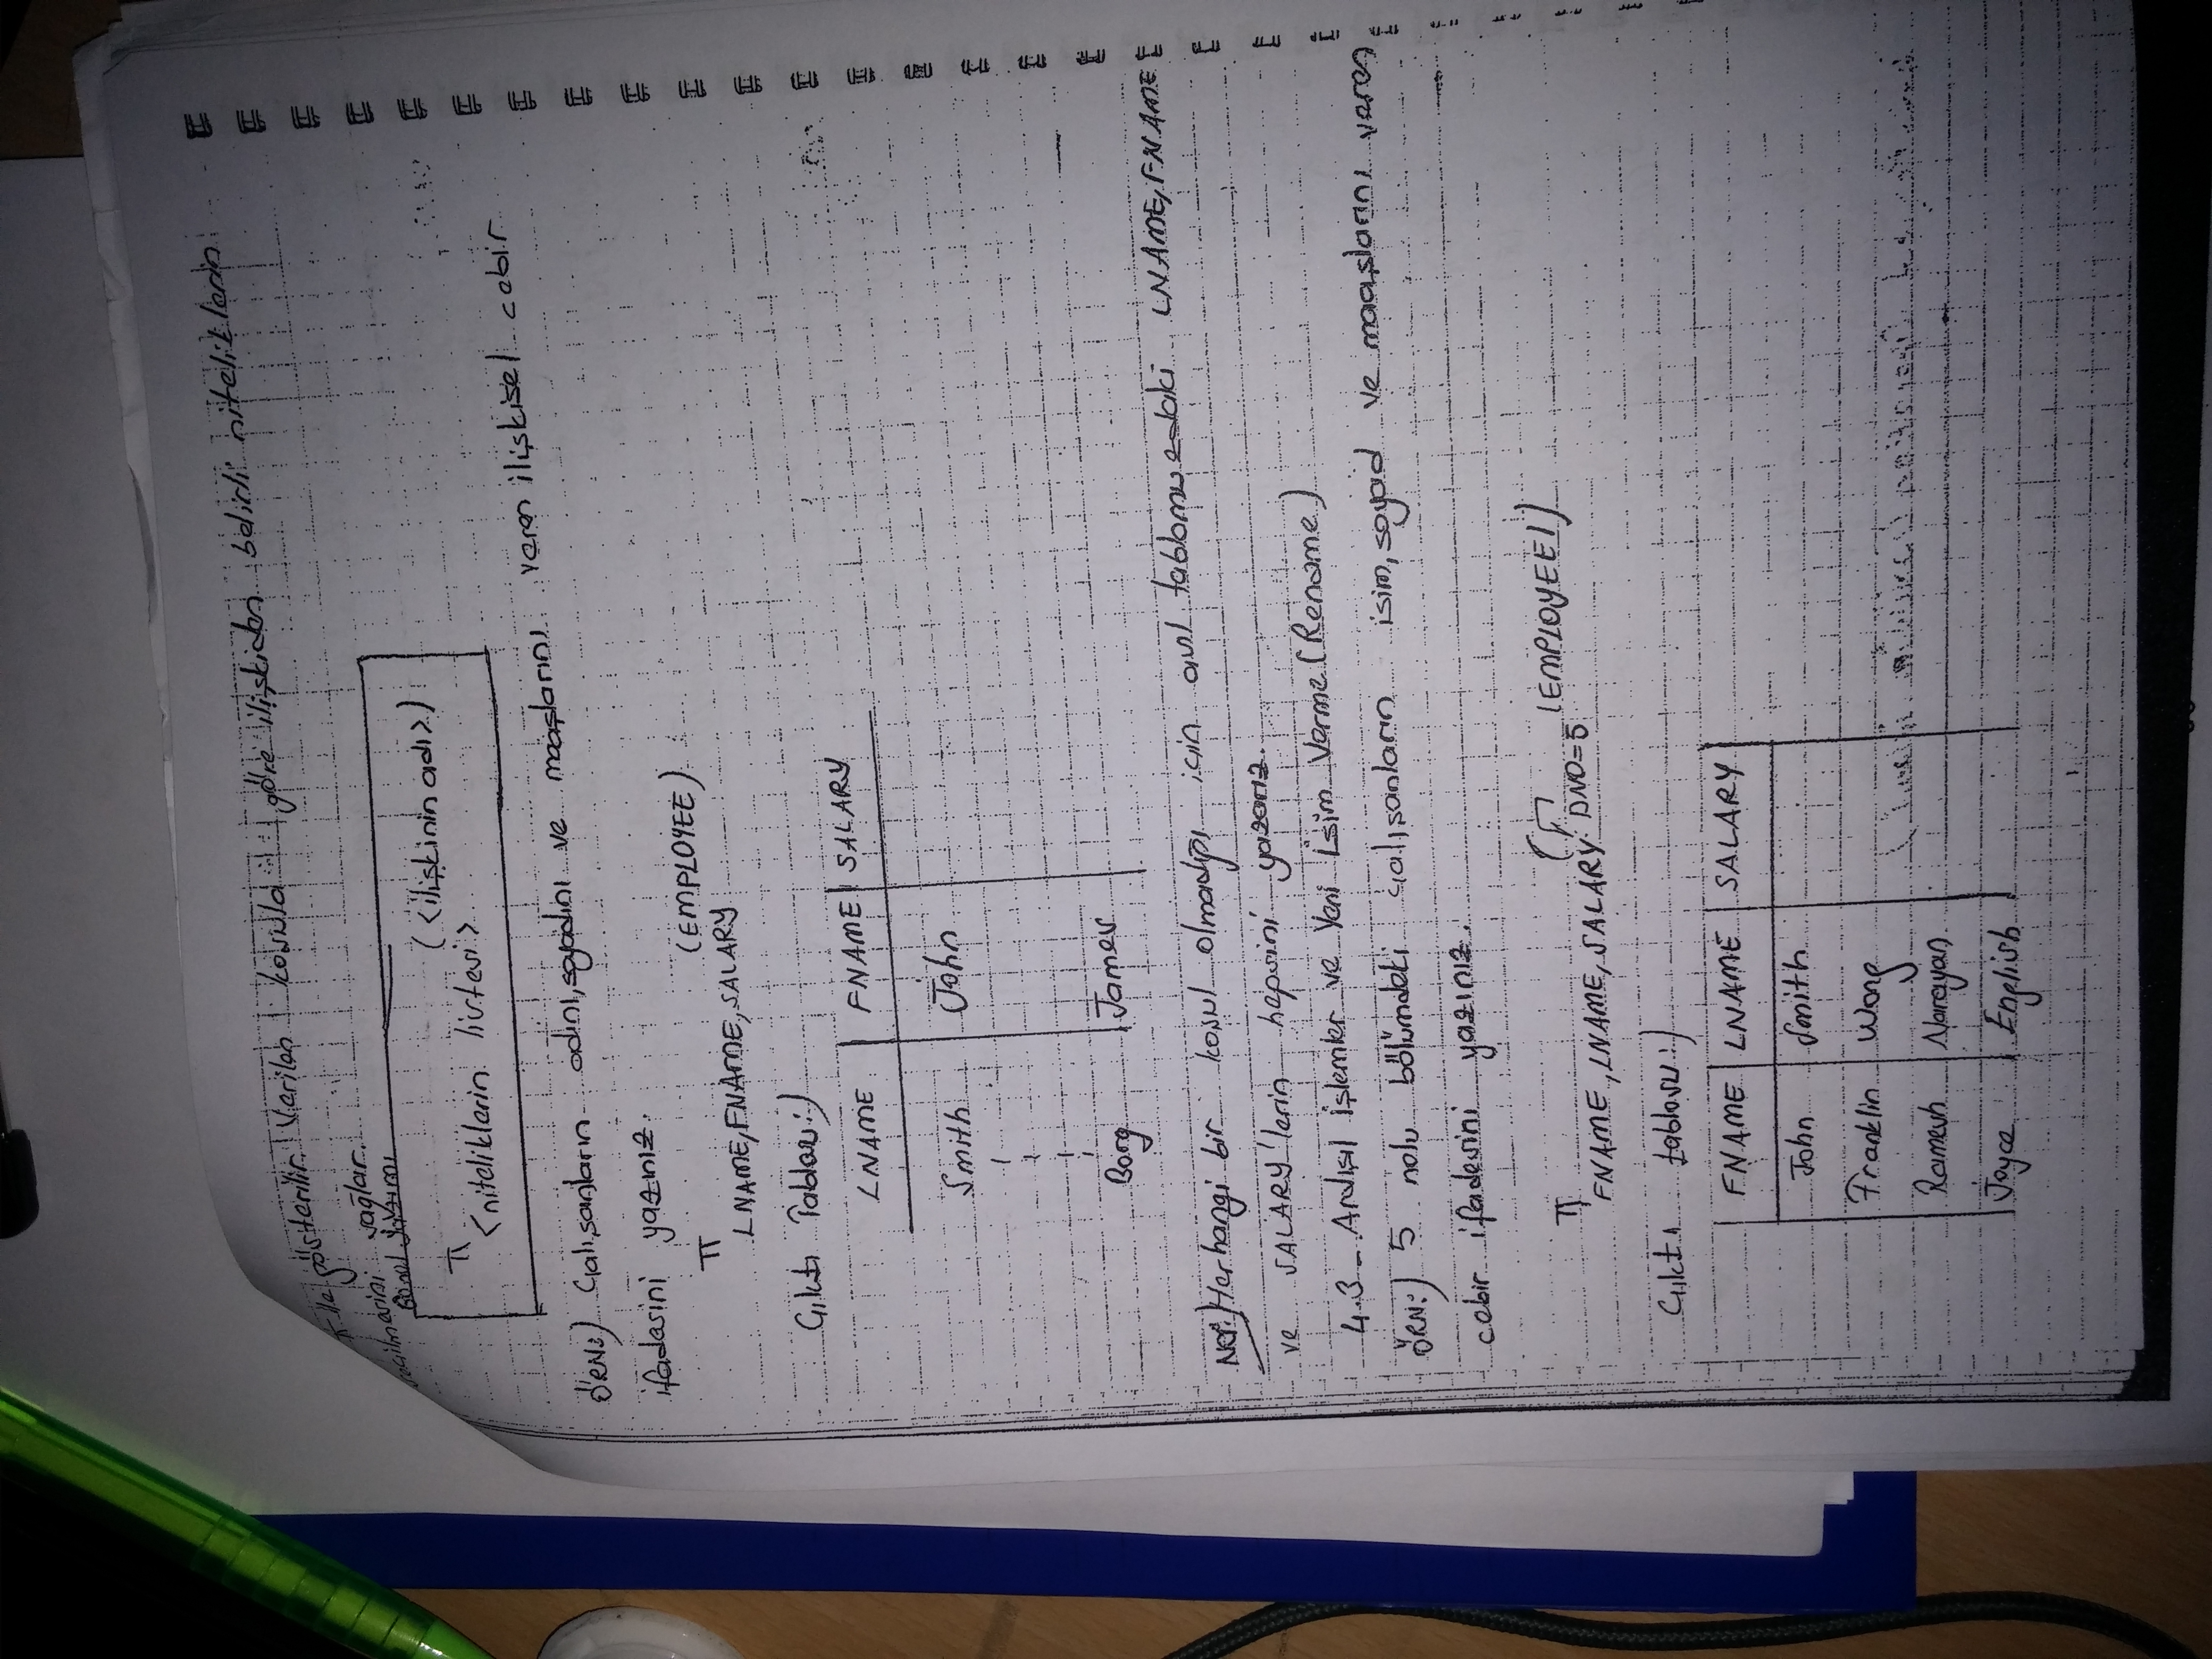 π ile gösterilir. Verilen koşula göre ilişkiden belirli niteliklerin
seçilmesini sağlar.
Genel Yazımı
π <niteliklerin listesi> (<ilişkinin adı>)
ÖRN:) Çalışanların adını,soyadını ve maaşlarını veren ilişkisel cebir
ifadesini yazınız.
π LNAME,FNAME,SALARY (EMPLOYEE)
Çıktı Tablosu:)
LNAME FNAME SALARY
Smith John
Borg James
NOT:) Herhangi bir koşul olmadığı için asıl tablomuzdaki LNAME,FNAME
ve SALARY'lerin hepsini yazarız.
4.3- Ardışıl İşlemler ve Yeni İsim Verme (Rename)
ÖRN:) 5 nolu bölümdeki çalışanların isim,soyad ve maaşlarını veren
cebir ifadesini yazınız.
π FNAME,LNAME,SALARY (σ DNO=5 (EMPLOYEE))
Çıktı tablosu:)
FNAME LNAME SALARY
John Smith
Franklin Wong
Ramesh Narayan
Joyce English